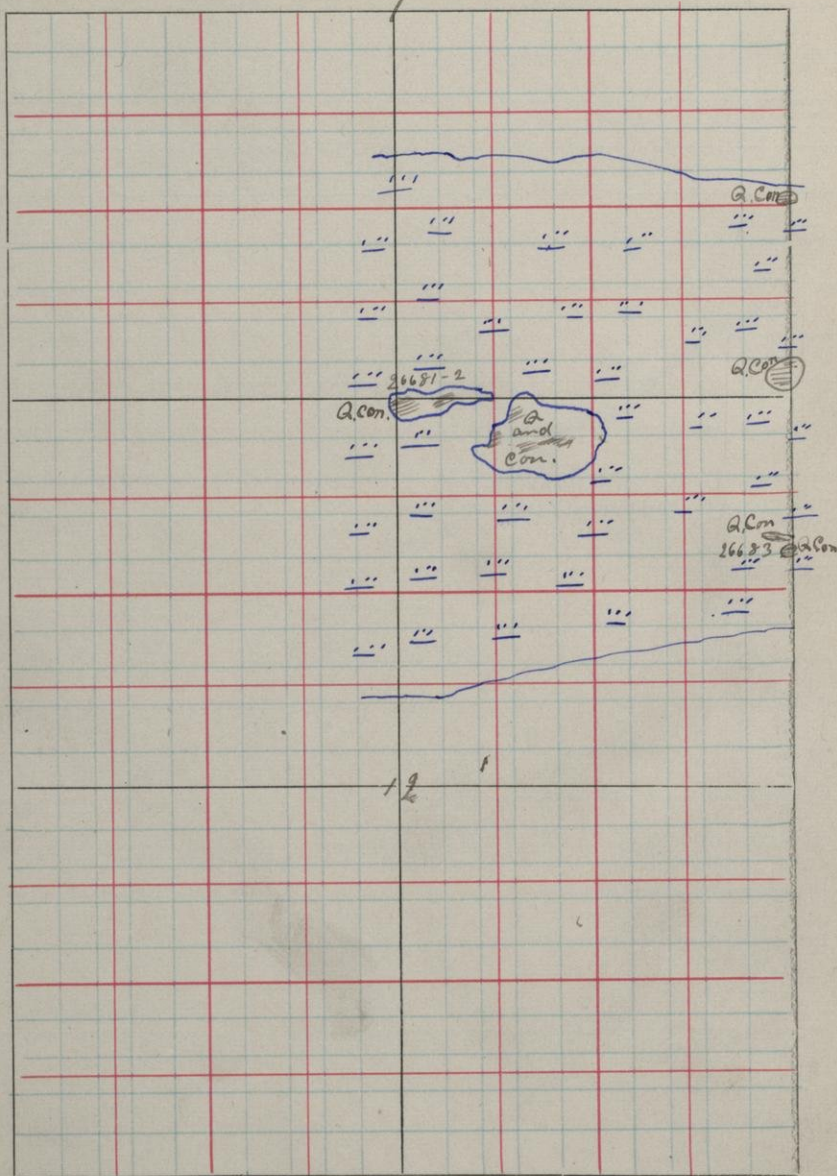 Q. Con
Q. Con
26681-2
Q. con.
Q
and
Con.
Q. Con
26683 Q Con
12